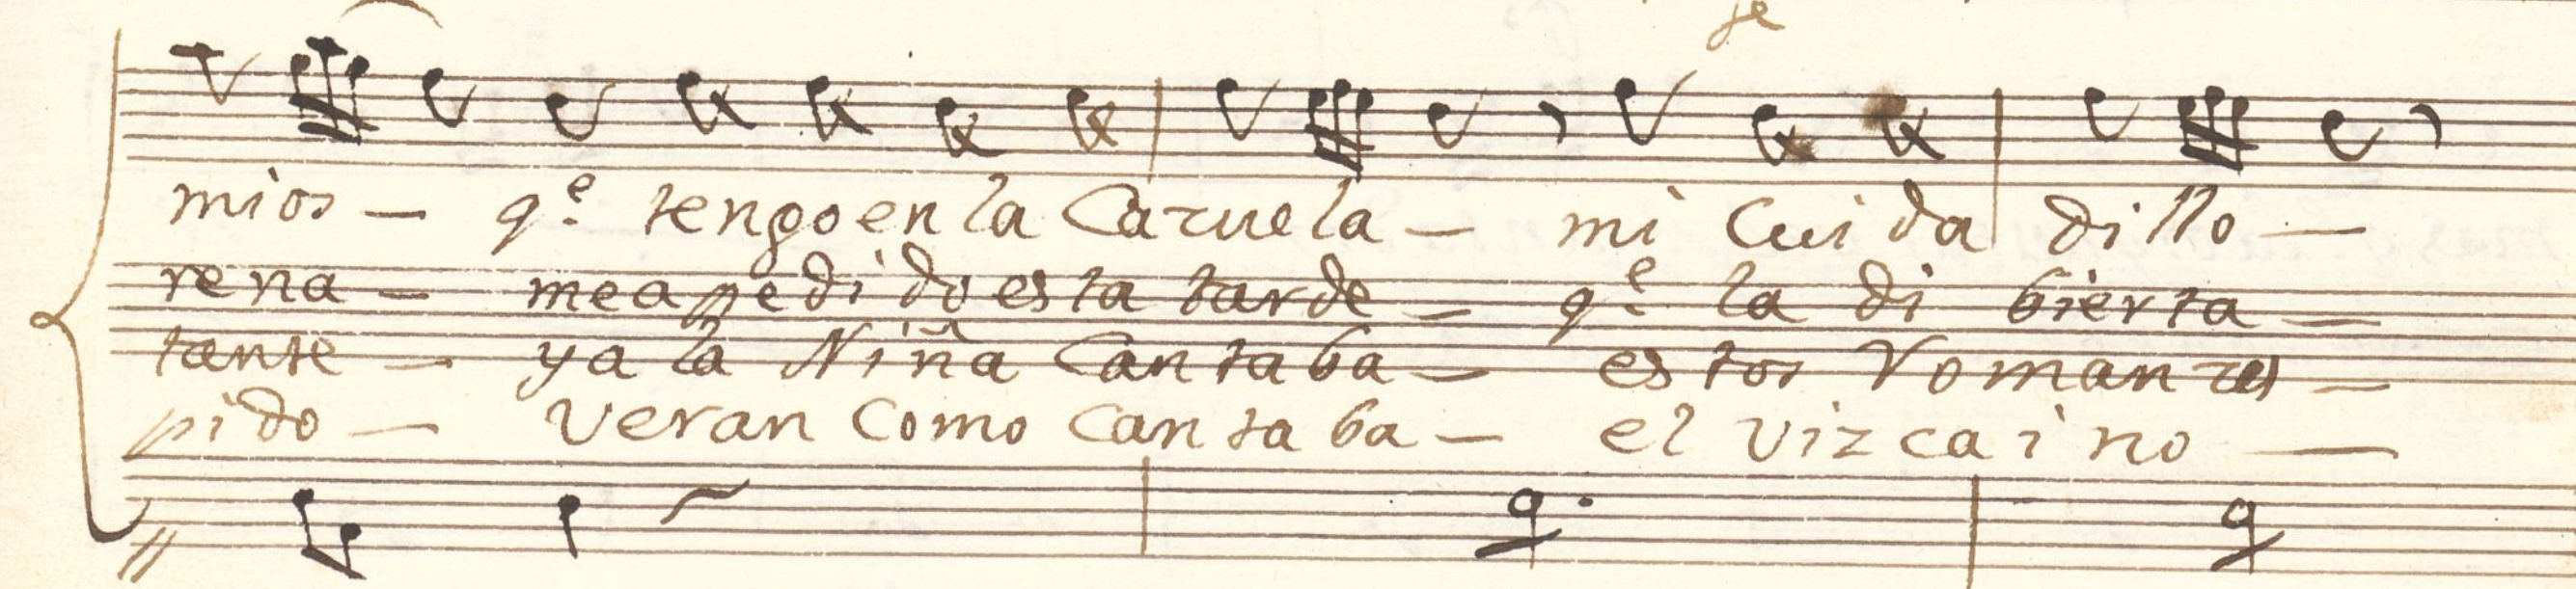 se
mios - q.e tengo en la Cazuela - mi Cuidadillo -
rena - mea pedido esta tarde - q.e la dibierta -
tante - ya la Niña Cantaba - estos Romanzes -
pido - veran como cantaba - el vizcaino -